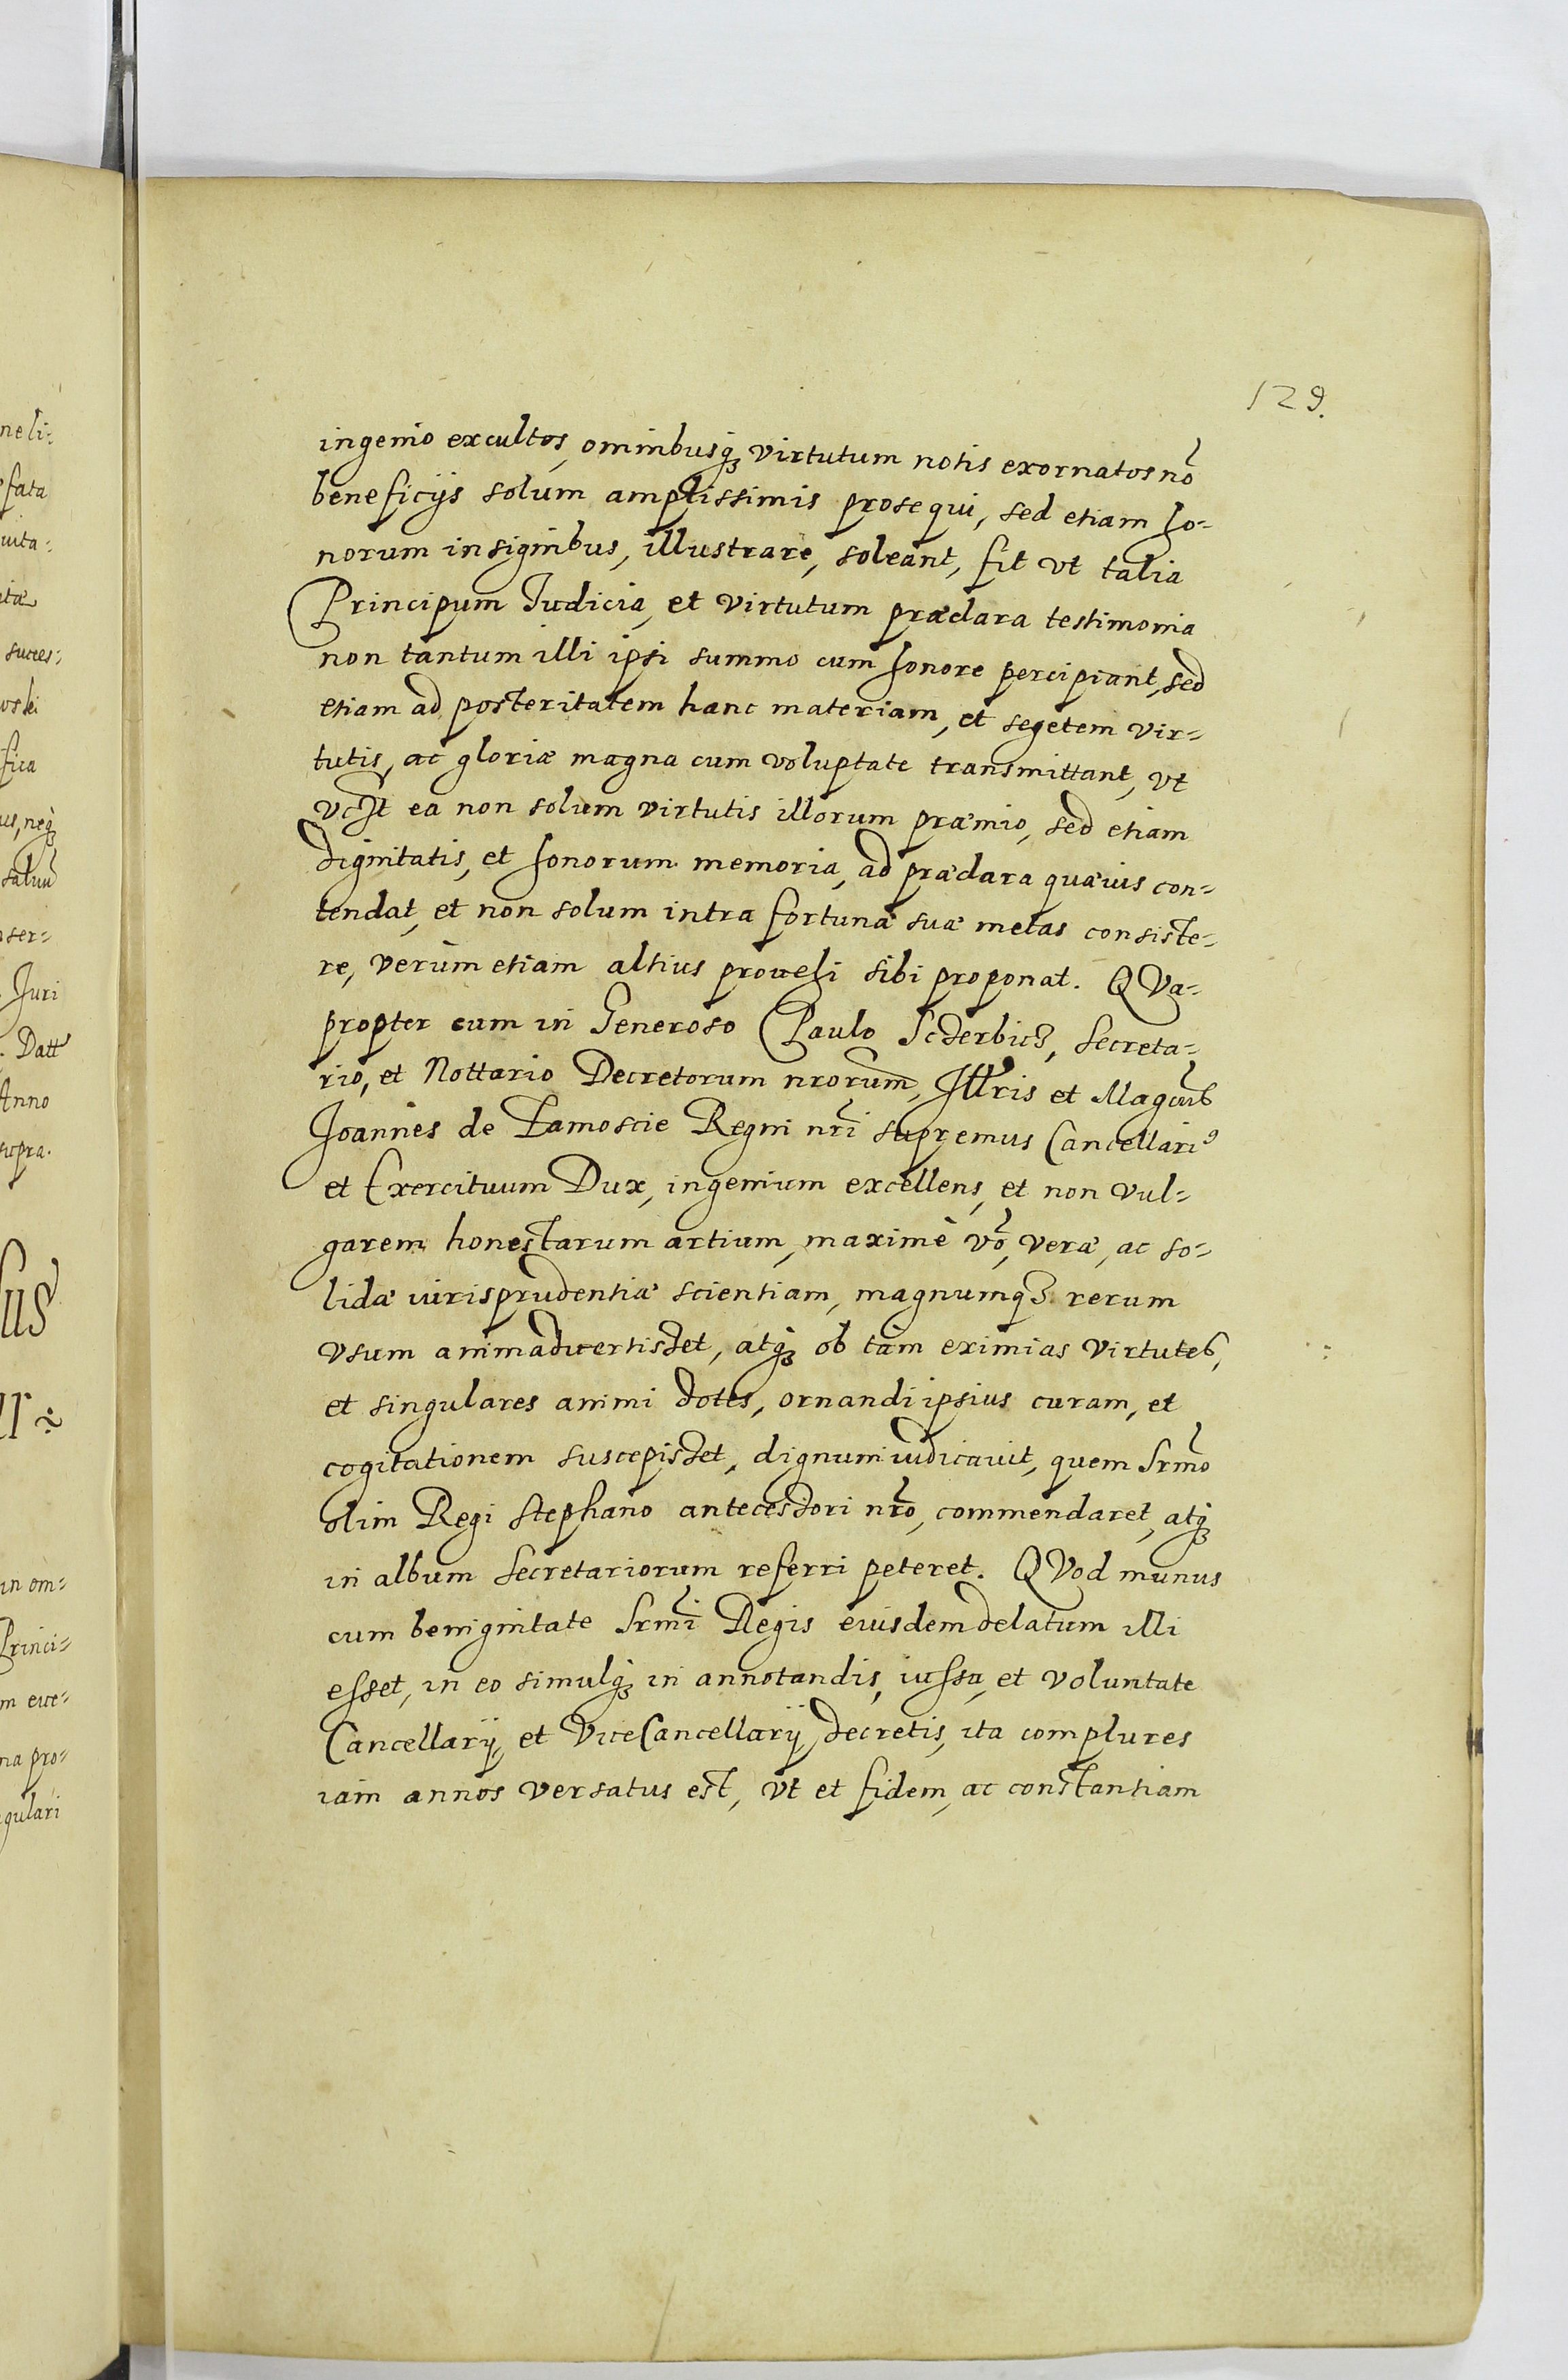 129.
ingenio excultos, omnibusq virtutum notis exornatos nō
beneficijs solum amplissimis prosequi, sed etiam ho-
norum insignibus, illustrare, soleant, fit vt talia
Principum Iudicia, et virtutum præclara testimonia
non tantum illi ipsi summo cum honore percipiant, sed
etiam ad posteritatem hanc materiam, et segetem vir-
tutis, ac gloriæ magna cum voluptate transmittant, vt
ea non solum virtutis illorum præmio, sed etiam
dignitatis, et honorum memoria, ad præclara quæuis con-
tendat, et non solum intra fortunæ suæ metas consiste-
re, verùm etiam altius prouehi sibi proponat. QVa-
propter cum in Generoso Paulo Sczerbicz, Secreta-
rio, et Nottario Decretorum nrorum, Illris et Magcus
Joannes de Zamoscie Regni nri supremus Cancellari9
et Exercituum Dux, ingenium excellens, et non vul-
garem honestarum artium, maximè vō, veræ, ac so-
lidæ iurisprudentiæ scientiam, magnumq rerum
vsum animaduertisset, atq ob tam eximias virtutes,
et singulares animi dotes, ornandi ipsius curam, et
cogitationem suscepisset, dignum iudicauit, quem Srmō
olim Regi Stephano antecessori nrō, commendaret, atq
in album Secretariorum referri peteret. QVod munus
cum benignitate Srmi Regis eiusdem delatum illi
esset, in eo simulq in annotandis, iussu, et voluntate
Cancellarij, et ViceCancellarij decretis, ita complures
iam annos versatus est, vt et fidem, ac constantiam
neli-
fata
uita-
succes-
oski
fica
us, neq
saluū
ser-
Juri
Datt
Anno
supra.
in om-
Princi-
na pro-
gulari